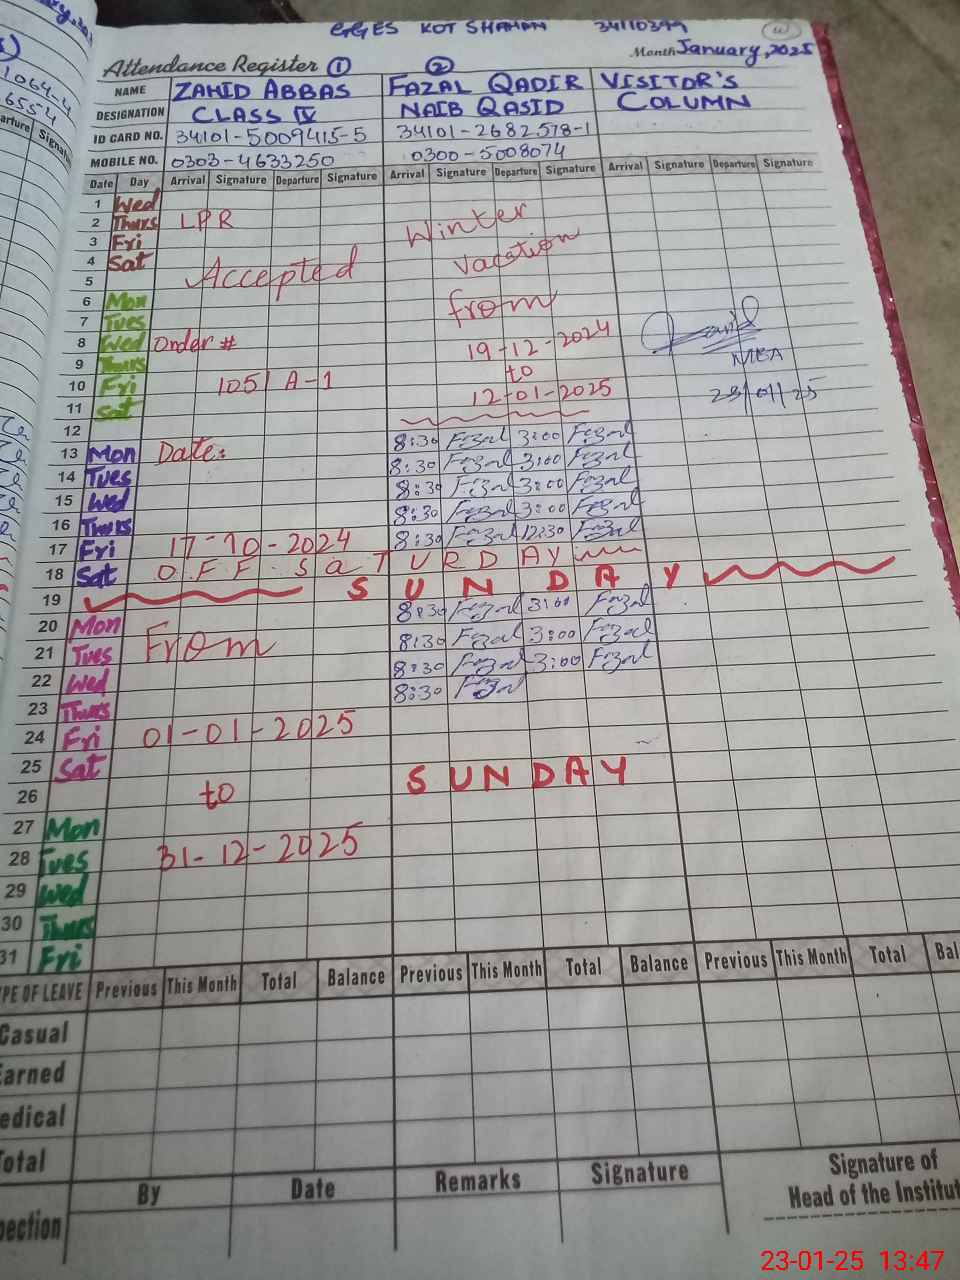 GGES KOT SHAHAN 34110399
Month January, 2025
Attendance Register ① ②
NAME ZAHID ABBAS FAZAL QADIR VISITOR'S
DESIGNATION CLASS IV NAIB QASID COLUMN
ID CARD NO. 34101-5009415-5 34101-2682578-1
MOBILE NO. 0303-4633250 0300-5008074
Date Day Arrival Signature Departure Signature Arrival Signature Departure Signature Arrival Signature Departure Signature
1 Wed
2 Thurs LPR Winter
3 Fri
4 Sat Vacation
5 Accepted
6 Mon from
7 Tues
8 Wed Order # 19-12-2024
9 Thurs to
10 Fri 105/ A-1 12-01-2025
11 Sat 23/01/25
12
13 Mon Date: 8:30 Fazal 3:00 Fazal
14 Tues 8:30 Fazal 3:00 Fazal
15 Wed 8:30 Fazal 3:00 Fazal
16 Thurs 8:30 Fazal 3:00 Fazal
17 Fri 17-10-2024 8:30 Fazal 12:30 Fazal
18 Sat OFF SaTURDAY
19 SUNDAY
20 Mon From 8:30 Fazal 3:00 Fazal
21 Tues 8:30 Fazal 3:00 Fazal
22 Wed 8:30 Fazal 3:00 Fazal
23 Thurs 8:30 Fazal
24 Fri 01-01-2025
25 Sat
26 to SUNDAY
27 Mon
28 Tues 31-12-2025
29 Wed
30 Thurs
31 Fri
YPE OF LEAVE Previous This Month Total Balance Previous This Month Total Balance Previous This Month Total Bal
Casual
Earned
edical
Total
By Date Remarks Signature Signature of
Head of the Institut
pection
23-01-25 13:47